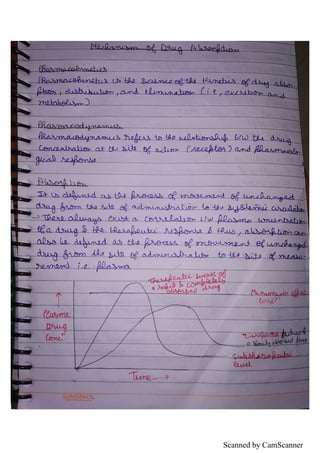 Mechanism of Drug Absorption
Pharmacokinetics
Pharmacokinetics is the Science of the kinetics of drug absor-
ption, distribution, and elimination (i.e, excretion and
metabolism)
Pharmacodynamics
Pharmacodynamics refers to the relationship b/w the drug
Concentration at the site of action (receptor) and Pharmacolo-
gical response
Absorption
It is defined as the process of movement of unchanged
drug from the site of administration to the systemic circulation
→ There always exist a correlation b/w plasma concentration
of a drug & the therapeutic response & thus, absorption can
also be defined as the process of movement of unchanged
drug from the site of administration to the site of measu-
rement i.e. plasma
therapeutic success of
a rapid & completely
absorbed drug
effective
concⁿ
Plasma
Drug
Concⁿ
failure of
a slowly absorbed drug
Subtherapeutic
level
Time →
SUNDARAM
Scanned by CamScanner